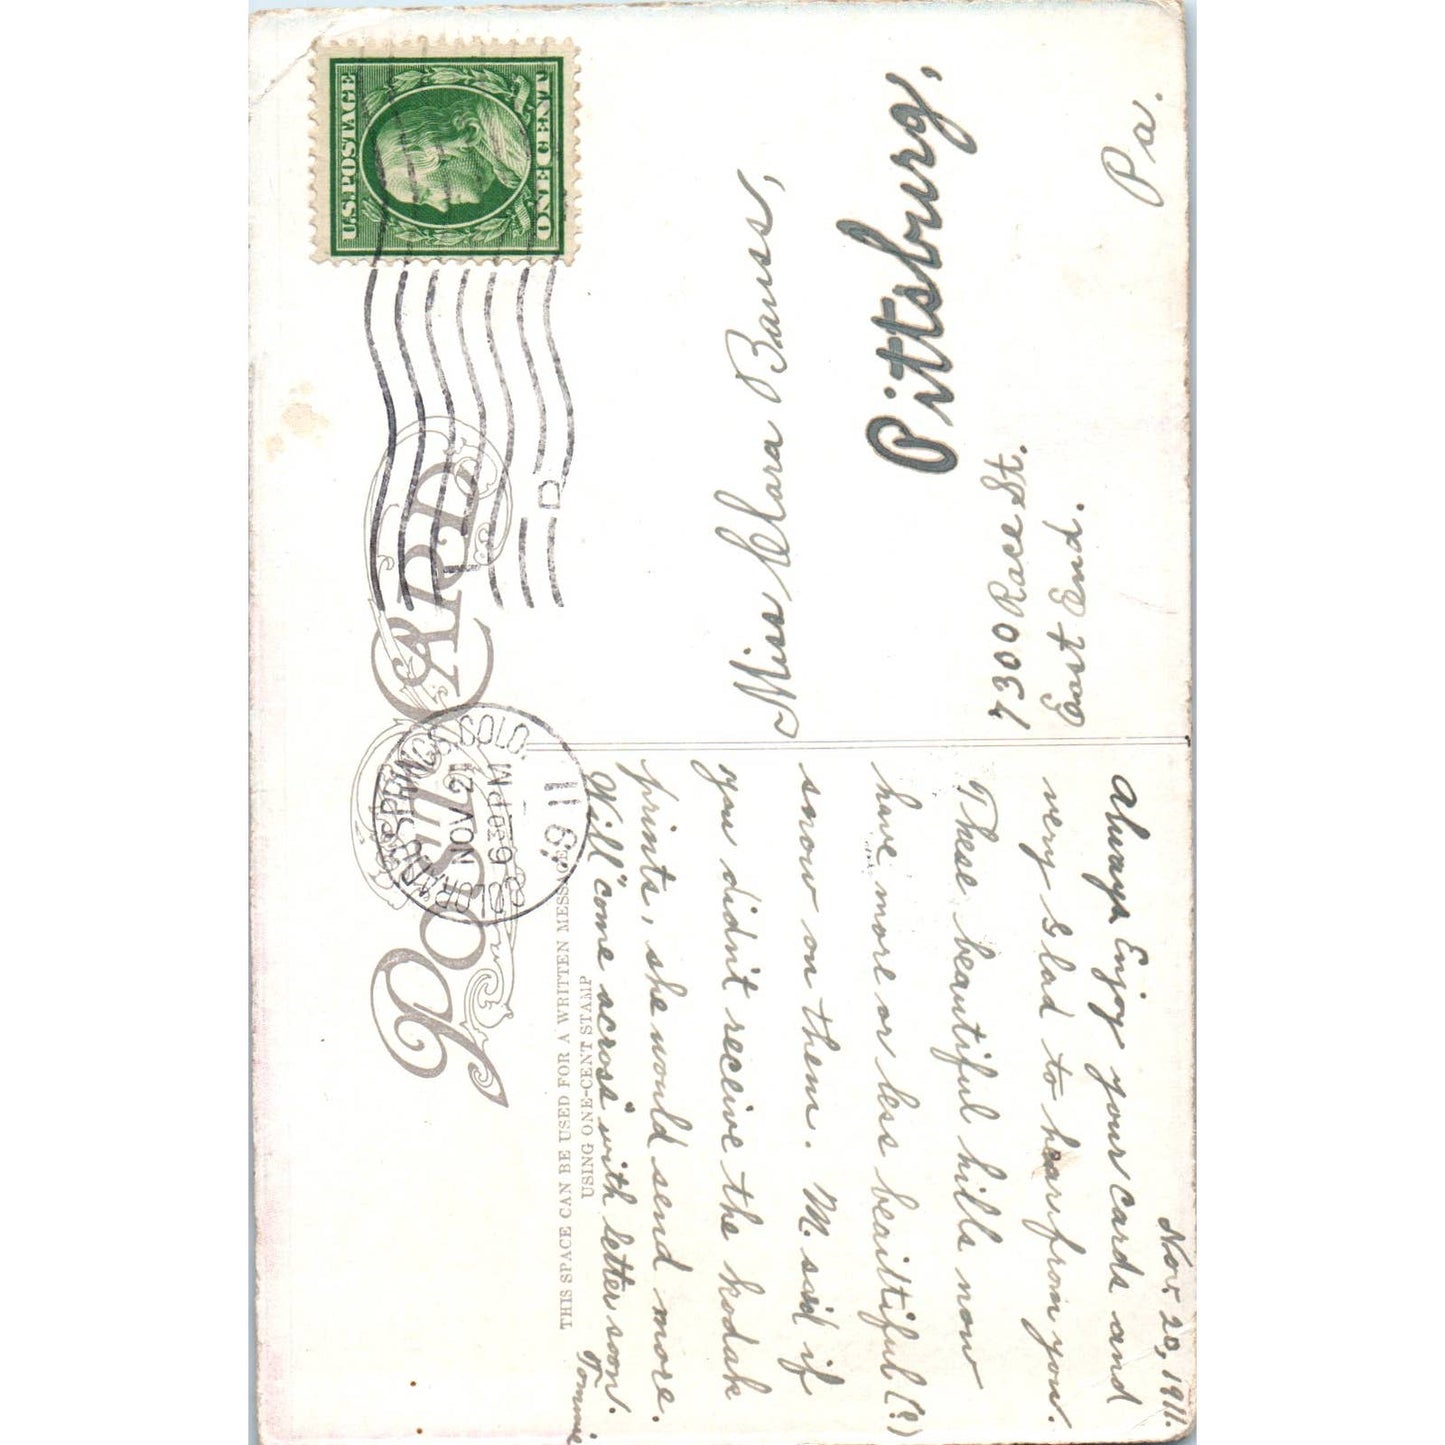 POST CARD
U.S. POSTAGE
ONE CENT
COLORADO SPRINGS, COLO.
NOV 21
630 PM
1911
D
THIS SPACE CAN BE USED FOR A WRITTEN MESSAGE
USING ONE-CENT STAMP
Nov. 20, 1911.
Always Enjoy your cards and
very glad to hear from you.
These beautiful hills now
have more or less beautiful (?)
snow on them. M. said if
you didn't receive the kodak
prints, she would send more.
Will "come across" with letter soon.
Tommie
Miss Clara Bauss,
Pittsburg,
7300 Race St.
East End.
Pa.